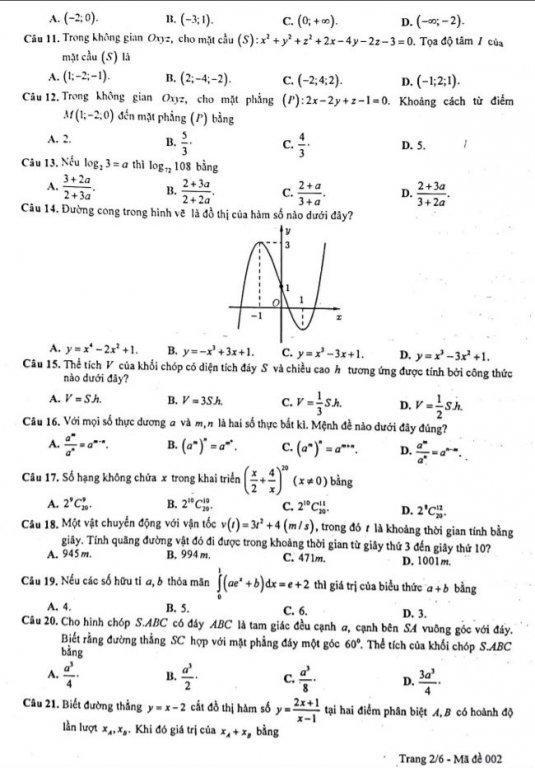 A. (-2;0). B. (-3;1). C. (0;+∞). D. (-∞;-2).
Câu 11. Trong không gian Oxyz, cho mặt cầu (S): x² + y² + z² + 2x - 4y - 2z - 3 = 0. Tọa độ tâm I của
mặt cầu (S) là
A. (1;-2;-1). B. (2;-4;-2). C. (-2;4;2). D. (-1;2;1).
Câu 12. Trong không gian Oxyz, cho mặt phẳng (P): 2x - 2y + z - 1 = 0. Khoảng cách từ điểm
M(1;-2;0) đến mặt phẳng (P) bằng
A. 2. B. 5/3. C. 4/3. D. 5.
Câu 13. Nếu log₂ 3 = a thì log₇₂ 108 bằng
A. (3+2a)/(2+3a). B. (2+3a)/(2+2a). C. (2+a)/(3+a). D. (2+3a)/(3+2a).
Câu 14. Đường cong trong hình vẽ là đồ thị của hàm số nào dưới đây?
y
3
1
O 1
-1 x
A. y = x⁴ - 2x² + 1. B. y = -x³ + 3x + 1. C. y = x³ - 3x + 1. D. y = x³ - 3x² + 1.
Câu 15. Thể tích V của khối chóp có diện tích đáy S và chiều cao h tương ứng được tính bởi công thức
nào dưới đây?
A. V = S.h. B. V = 3S.h. C. V = 1/3 S.h. D. V = 1/2 S.h.
Câu 16. Với mọi số thực dương a và m, n là hai số thực bất kì. Mệnh đề nào dưới đây đúng?
A. aᵐ/aⁿ = aᵐ⁻ⁿ. B. (aᵐ)ⁿ = C. (aᵐ)ⁿ = aᵐ⁺ⁿ. D. aᵐ/aⁿ = aⁿ⁻ᵐ.
Câu 17. Số hạng không chứa x trong khai triển (x/2 + 4/x)²⁰ (x ≠ 0) bằng
A. 2⁹C₂₀⁹. B. 2¹⁰C₂₀¹⁰. C. 2¹⁰C₂₀¹¹. D. 2⁸C₂₀¹².
Câu 18. Một vật chuyển động với vận tốc v(t) = 3t² + 4 (m/s), trong đó t là khoảng thời gian tính bằng
giây. Tính quãng đường vật đó đi được trong khoảng thời gian từ giây thứ 3 đến giây thứ 10?
A. 945m. B. 994m. C. 471m. D. 1001m.
Câu 19. Nếu các số hữu tỉ a, b thỏa mãn ∫₀¹(aeˣ + b)dx = e + 2 thì giá trị của biểu thức a + b bằng
A. 4. B. 5. C. 6. D. 3.
Câu 20. Cho hình chóp S.ABC có đáy ABC là tam giác đều cạnh a, cạnh bên SA vuông góc với đáy.
Biết rằng đường thẳng SC hợp với mặt phẳng đáy một góc 60°. Thể tích của khối chóp S.ABC
bằng
A. a³/4. B. a³/2. C. a³/8. D. 3a³/4.
Câu 21. Biết đường thẳng y = x - 2 cắt đồ thị hàm số y = (2x+1)/(x-1) tại hai điểm phân biệt A, B có hoành độ
lần lượt x_A, x_B. Khi đó giá trị của x_A + x_B bằng
Trang 2/6 - Mã đề 002